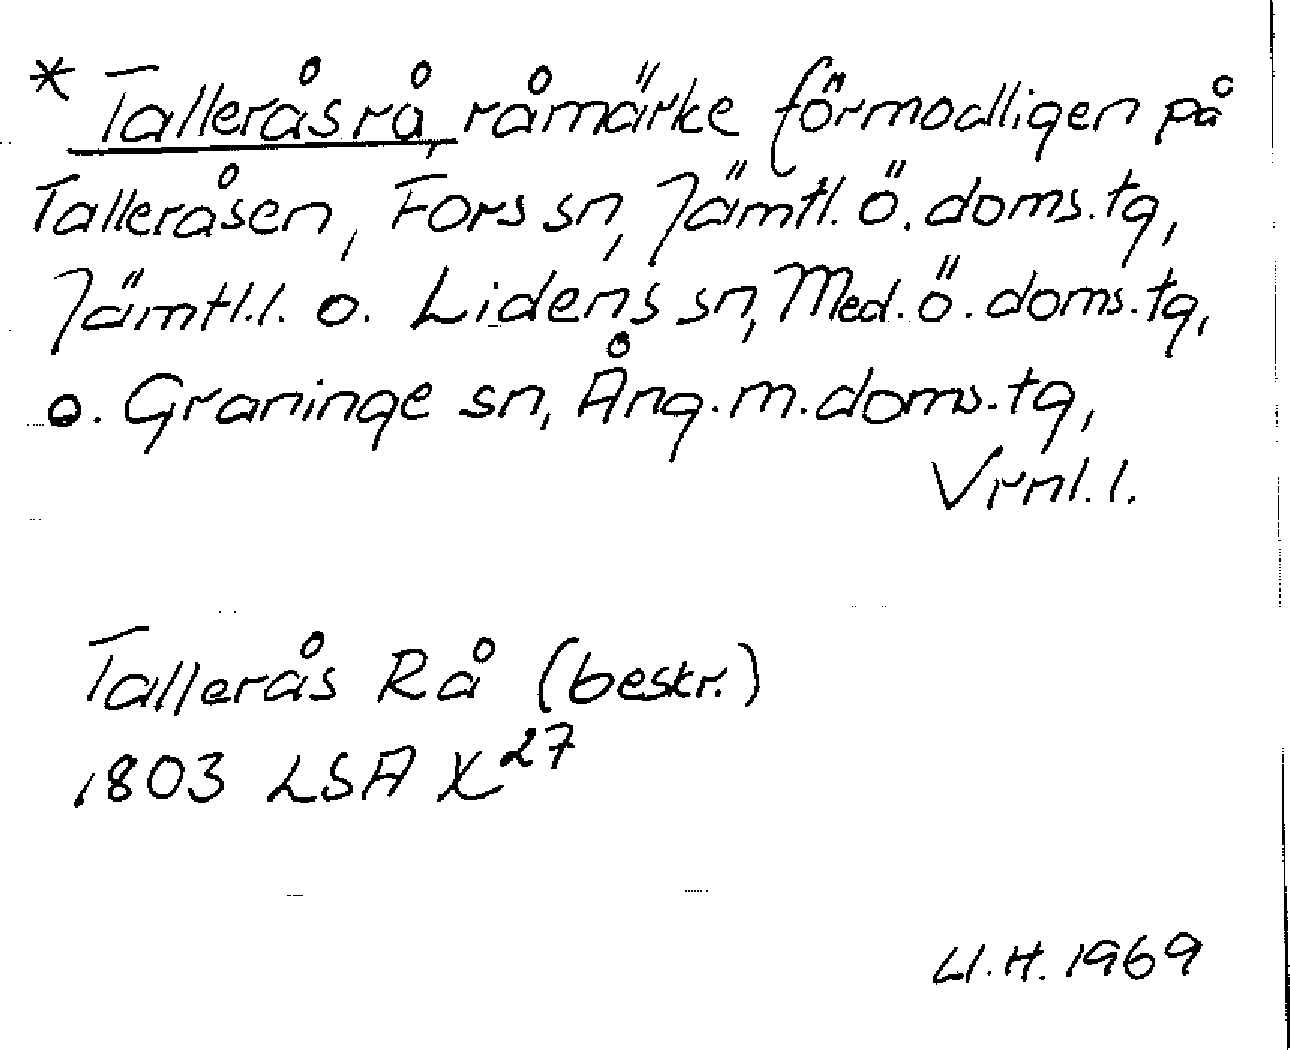 * Talleråsrå, råmärke förmodligen på
Talleråsen, Fors sn, Jämtl. ö. doms.tg,
Jämtl.l. o. Lidens sn, Med. ö. doms.tg,
o. Graninge sn, Ång. m. doms.tg,
Vrnl. l.
Tallerås Rå (beskr.)
1803 LSA X27
Ll. H. 1969